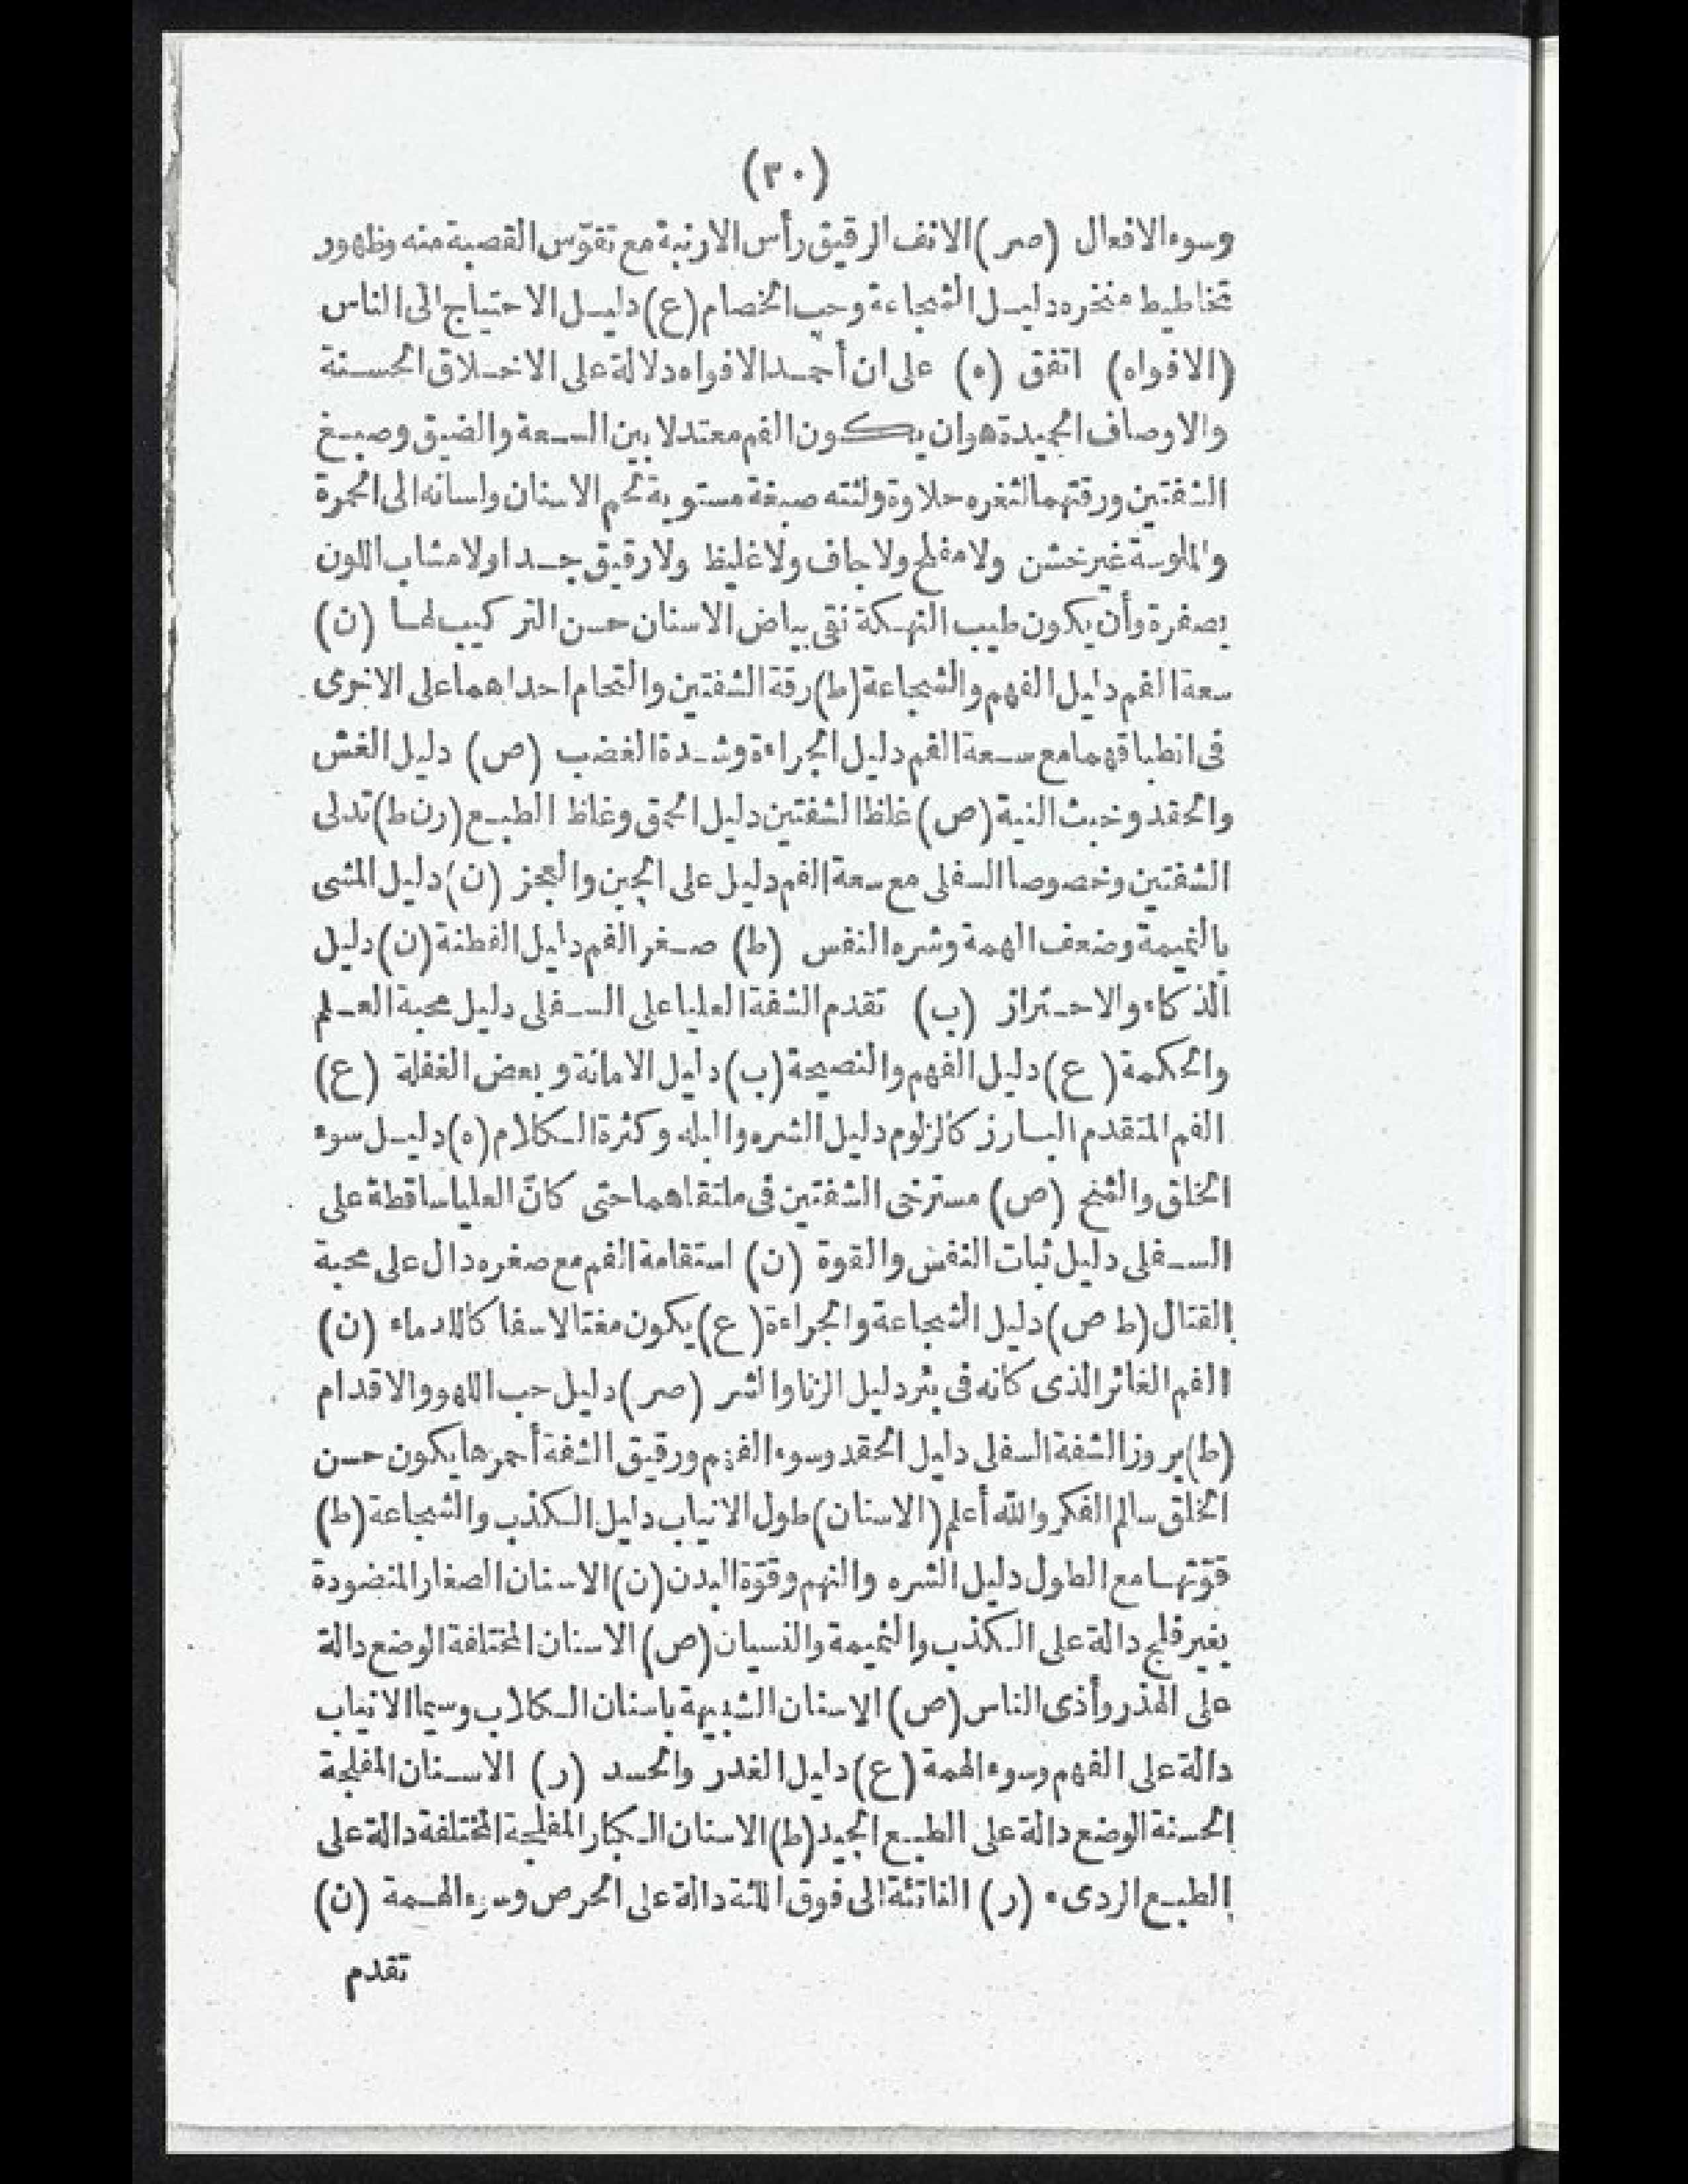 (٣٠)
وسوء الافعال (صر) الانف الرقيق رأس الارنبة مع تقوّس القصبة منه وظهور
تخاطيط منخره دليل الشجاعة وحب الخصام (ع) دليل الاحتياج الى الناس
(الافواه) اتفق (ه) على ان أحمد الافواه دلالة على الاخلاق الحسنة
والاوصاف الجيدة هو ان يكون الفم معتدلا بين السعة والضيق وصبغ
الشفتين ورقتهما لثغره حلاوة ولثته صبغة مستوية لحم الاسنان ولسانه الى الحمرة
والملوسة غير خشن ولا مفلح ولا جاف ولا غليظ ولا رقيق جدا ولا مشاب اللون
بصفرة وأن يكون طيب النهكة نقى بياض الاسنان حسن التركيب لها (ن)
سعة الفم دليل الفهم والشجاعة (ط) رقة الشفتين والتحام احداهما على الاخرى
فى انطباقهما مع سعة الفم دليل الجراءة وشدة الغضب (ص) دليل الغش
والحقد وخبث النية (ص) غلظ الشفتين دليل الحمق وغلظ الطبع (رن ط) تدلى
الشفتين وخصوصا السفلى مع سعة الفم دليل على الجبن والعجز (ن) دليل المشى
بالنميمة وضعف الهمة وشره النفس (ط) صغر الفم دليل الفطنة (ن) دليل
الذكاء والاحتراز (ب) تقدم الشفة العليا على السفلى دليل محبة العلم
والحكمة (ع) دليل الفهم والنصيحة (ب) دليل الامانة وبعض الغفلة (ع)
الفم المتقدم البارز كالزلوم دليل الشره والبله وكثرة الكلام (ه) دليل سوء
الخلق والشح (ص) مسترخى الشفتين فى ملتقاهما حتى كانّ العليا ساقطة على
السفلى دليل ثبات النفس والقوة (ن) استقامة الفم مع صغره دال على محبة
القتال (ط ص) دليل الشجاعة والجراءة (ع) يكون مغتالا سفا كاللدماء (ن)
الفم الغائر الذى كانه فى بئر دليل الزنا والشر (صر) دليل حب اللهو والاقدام
(ط) بروز الشفة السفلى دليل الحقد وسوء الفهم ورقيق الشفة أحمرها يكون حسن
الخلق سالم الفكر والله أعلم (الاسنان) طول الانياب دليل الكذب والشجاعة (ط)
قوّتها مع الطول دليل الشره والنهم وقوّة البدن (ن) الاسنان الصغار المنضودة
بغير فلج دالة على الكذب والنميمة والنسيان (ص) الاسنان المختلفة الوضع دالة
على الهذر وأذى الناس (ص) الاسنان الشبيهة باسنان الكلاب وسيما الانياب
دالة على الفهم وسوء الهمة (ع) دليل الغدر والحسد (ر) الاسنان المفلجة
الحسنة الوضع دالة على الطبع الجيد (ط) الاسنان الكبار المفلجة المختلفة دالة على
الطبع الردىء (ر) الناتئة الى فوق اللثة دالة على الحرص وسوء الهمة (ن)
تقدم